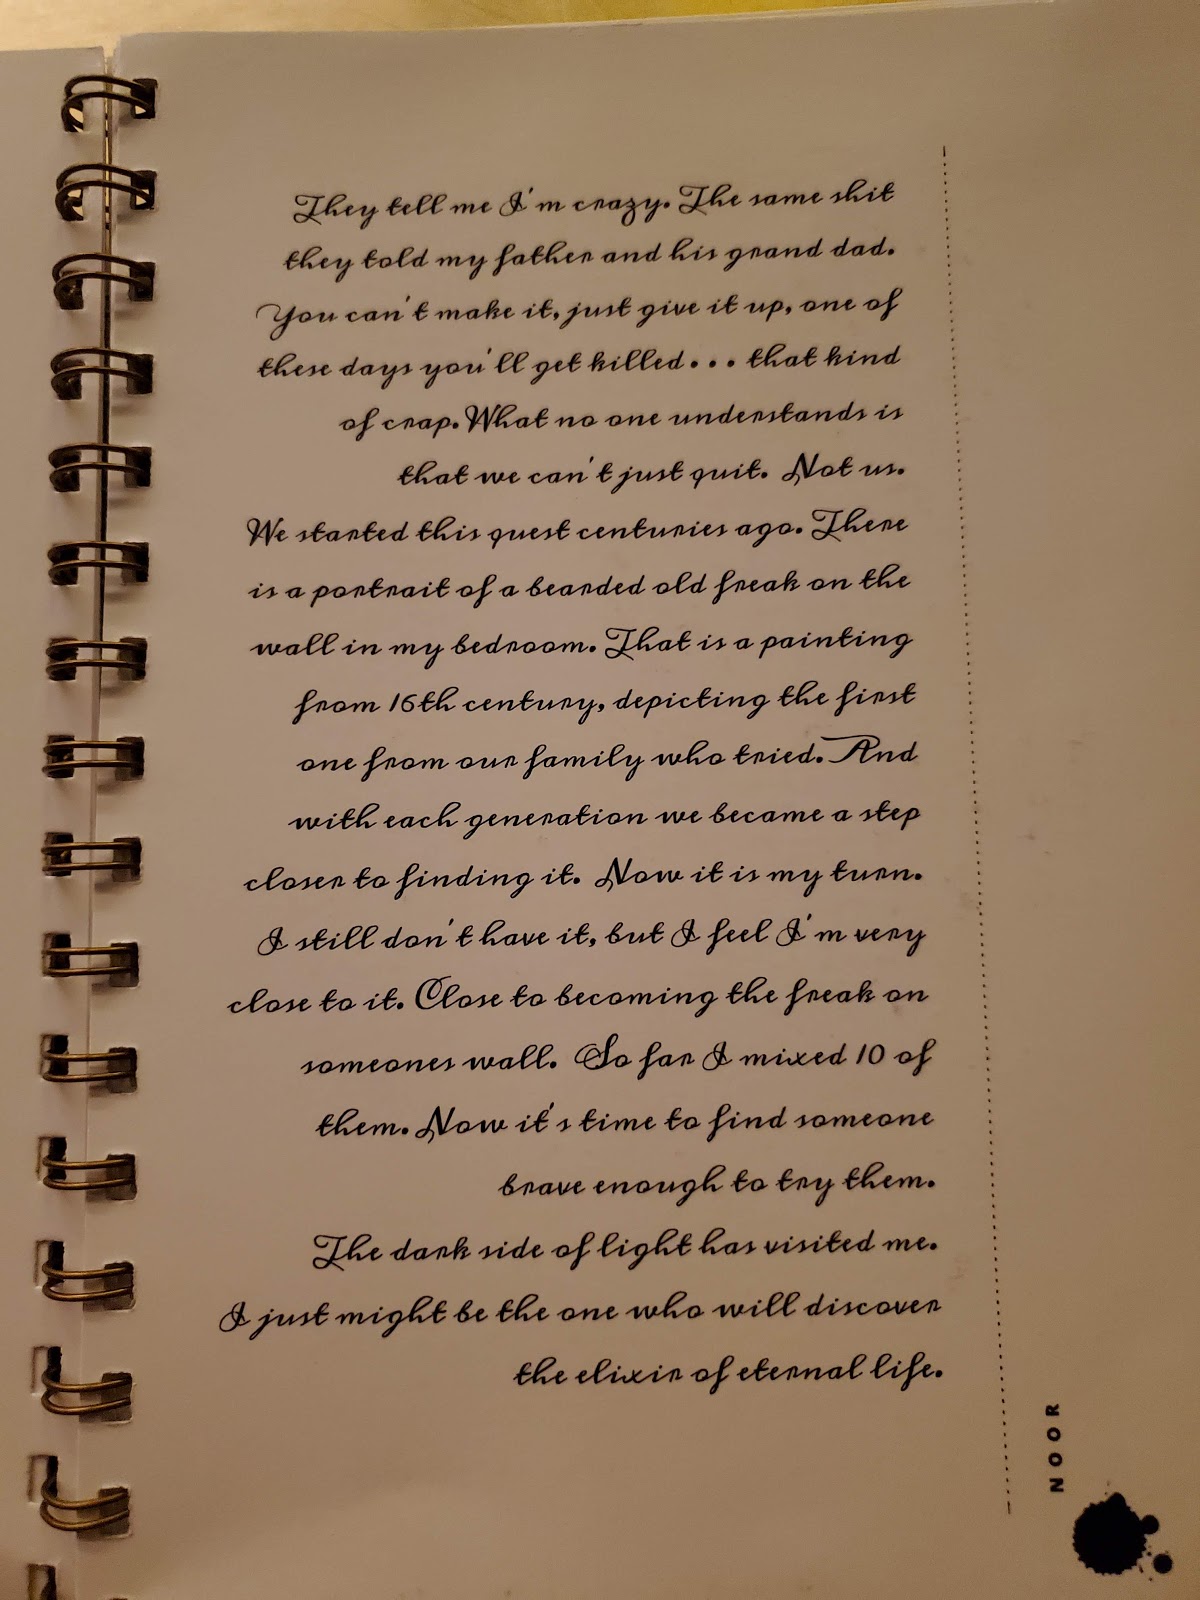 They tell me I'm crazy. The same shit
they told my father and his grand dad.
You can't make it, just give it up, one of
these days you'll get killed... that kind
of crap. What no one understands is
that we can't just quit. Not us.
We started this quest centuries ago. There
is a portrait of a bearded old freak on the
wall in my bedroom. That is a painting
from 16th century, depicting the first
one from our family who tried. And
with each generation we became a step
closer to finding it. Now it is my turn.
I still don't have it, but I feel I'm very
close to it. Close to becoming the freak on
someones wall. So far I mixed 10 of
them. Now it's time to find someone
brave enough to try them.
The dark side of light has visited me.
I just might be the one who will discover
the elixir of eternal life.
NOOR